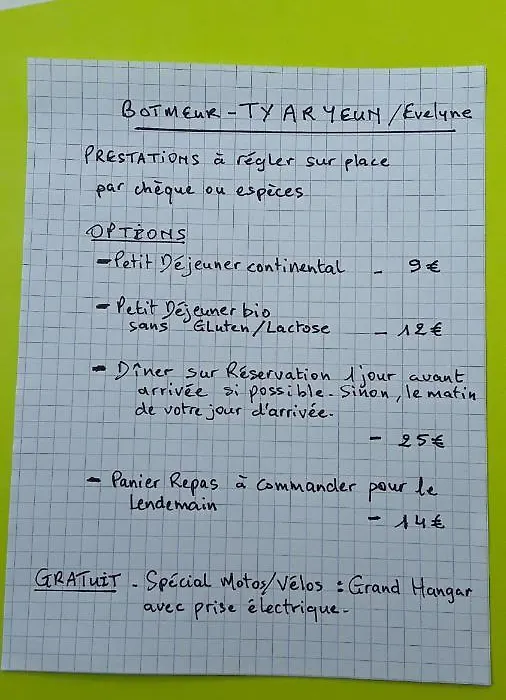 BOTMEUR - TY AR YEUN / Evelyne
PRESTATIONS à régler sur place
par chèque ou espèces
OPTIONS
- Petit Déjeuner continental - 9 €
- Petit Déjeuner bio
sans Gluten/Lactose - 12 €
- Dîner sur Réservation 1 jour avant
arrivée si possible. Sinon, le matin
de votre jour d'arrivée.
- 25 €
- Panier Repas à commander pour le
Lendemain
- 14 €
GRATUIT - Spécial Motos/Vélos : Grand Hangar
avec prise électrique -